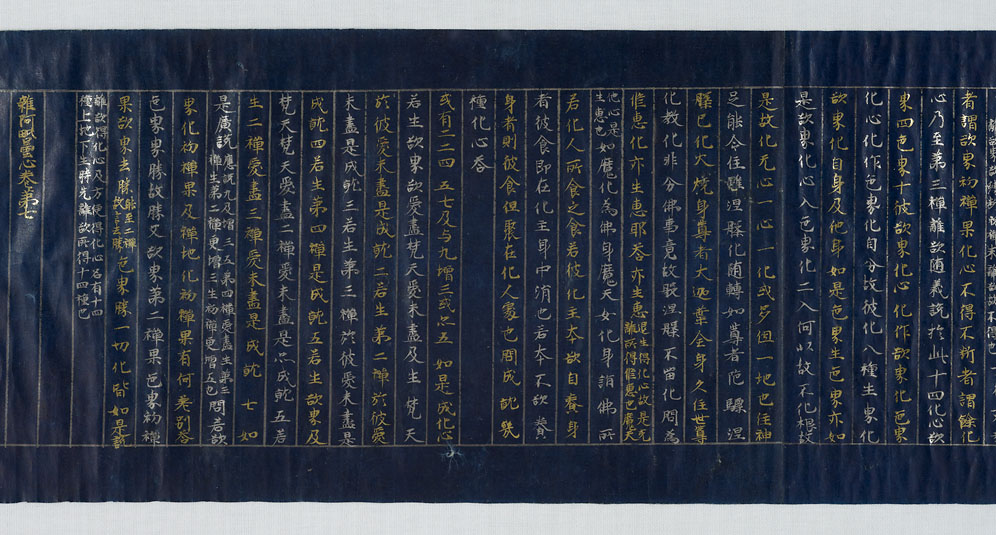 者謂欲界初禪果化心不得不斷者謂餘化
心乃至第三禪離欲随義說於此十四化心欲
界四色界十彼欲界化心化作欲界化色界
化心化作色界化自分故彼化八種生界化
欲界化自身及他身如是色界生色界亦如
是欲界化心入色界化二入何以故不化根故
是故化无心一心一化或多但一地也住神
足能令住雖涅槃化随轉如尊者陀驃涅
槃已化火燒身尊者大迦葉全身久住世尊
化教化非分佛事竟故般涅槃不留化問為
惟惠化亦生惠耶答亦生惠現生得化心故是无
難所得惟惠也
他心是
生惠也如魔化為佛身魔天女化身詣佛所
若化人所食之食若彼化主本欲自養身
者彼食即在化主身中消也若本不欲養
身者則彼食但聚在化人處也問成就幾
種化心答
或有二三四 五七及与九增三或 五 如是成化心
若生欲界欲愛盡梵天愛未盡及生梵天
於彼愛未盡是成就二若生第二禪於彼愛
未盡是成就三若生第三禪於彼愛未盡是
成就四若生第四禪是成就五若生欲界及
梵天梵天愛盡二禪愛未盡是 成就五若
生二禪愛盡三禪愛未盡是成就 七 如
是廣說廣說九及增三五第四禪愛盡生第三
禪生第二禪更增三生初禪更增五也問若欲
界化初禪果及禪地化初禪果有何差別答
色界界勝故勝又欲界第二禪果色界初禪
果欲界去勝能至二禪
故言去勝色界勝一切化皆如是說
離欲得化心及方便得化心合有十四
從上地下生時先離欲所得十四種也
雜阿毗曇心卷第七